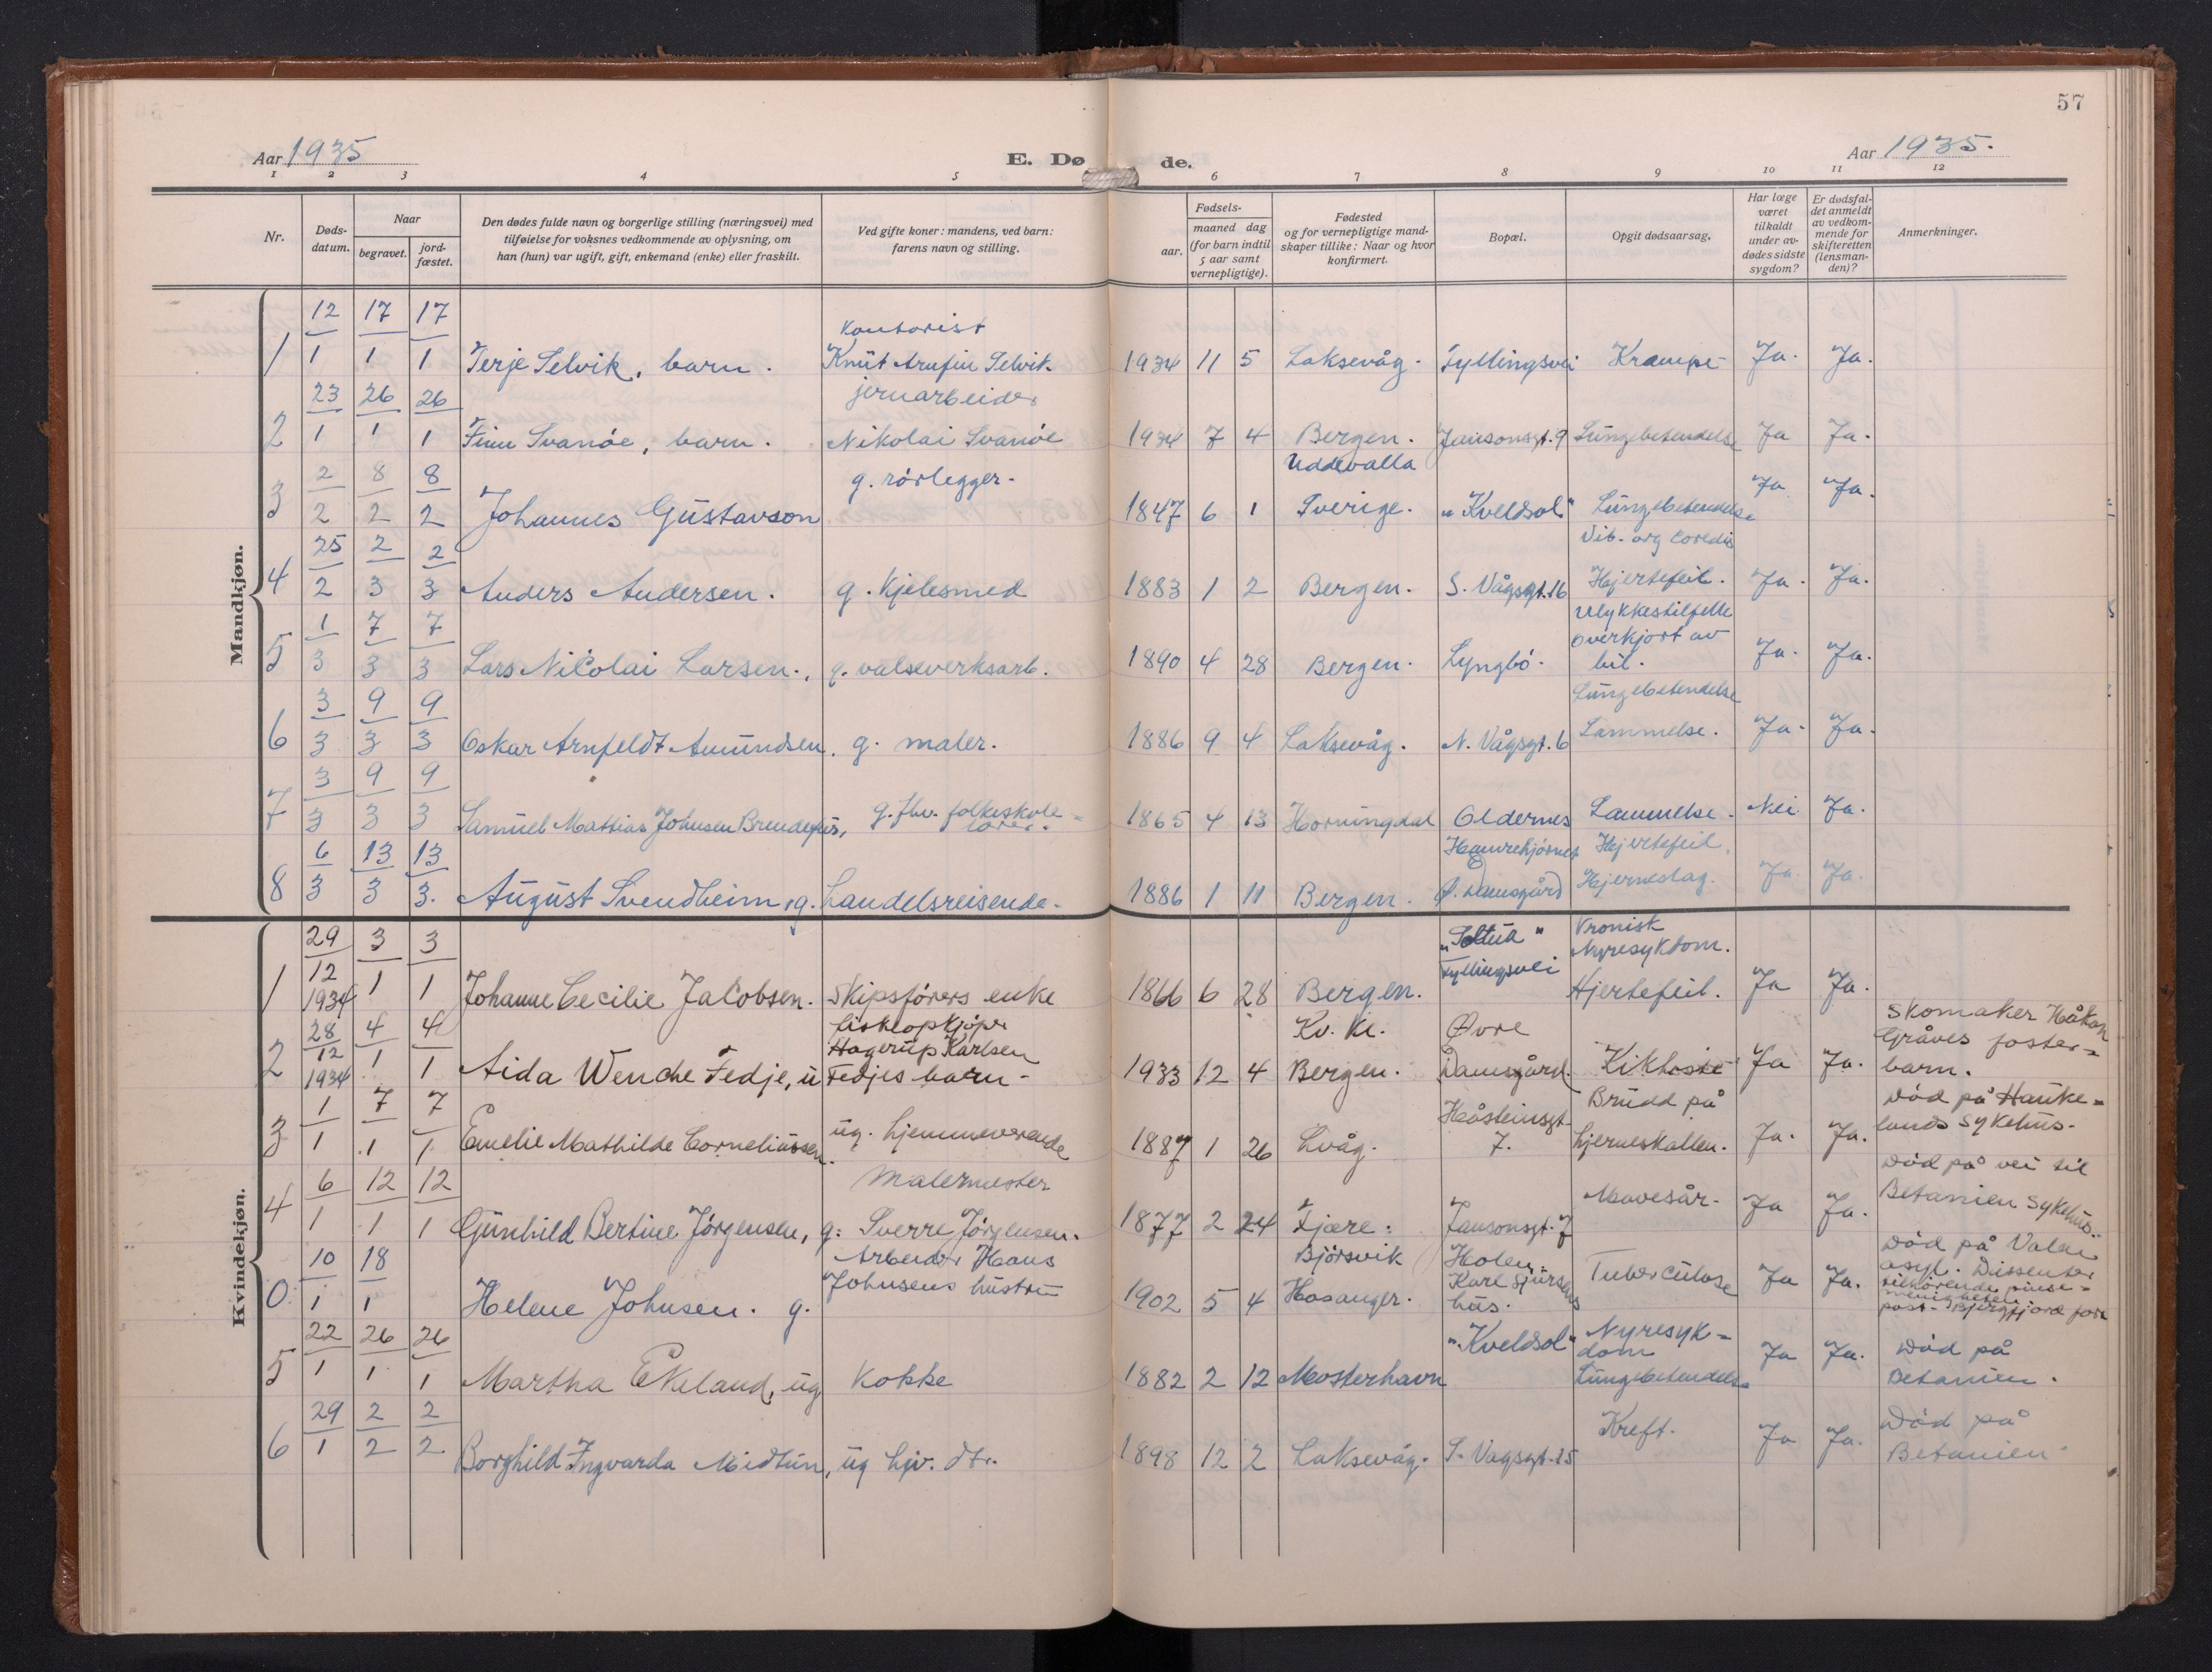 57
Aar 1935
E. Dø de.
Aar 1935.
1 2 3 4 5 6 7 8 9 10 11 12
Nr.
Døds-
datum.
Naar
begravet.
jord-
fæstet.
Den dødes fulde navn og borgerlige stilling (næringsvei) med
tilføielse for voksnes vedkommende av oplysning, om
han (hun) var ugift, gift, enkemand (enke) eller fraskilt.
Ved gifte koner: mandens, ved barn:
farens navn og stilling.
Fødsels-
aar.
maaned dag
(for barn indtil
5 aar samt
vernepligtige).
Fødested
og for vernepligtige mand-
skaper tillike: Naar og hvor
konfirmert.
Bopæl.
Opgit dødsaarsag.
Har læge
været
tilkaldt
under av-
dødes sidste
sygdom?
Er dødsfal-
det anmeldt
av vedkom-
mende for
skifteretten
(lensman-
den)?
Anmerkninger.
Mandkjøn.
12 17 17
kontorist
1 1 1 1 Terje Selvik, barn. Knut Arnfin Selvik. 1934 11 5 Laksevåg. Fyllingsvei Krampe Ja. Ja.
23 26 26 jernarbeider
2 1 1 1 Finn Svanøe, barn. Nikolai Svanøe 1934 7 4 Bergen. Jansonsgt. 9 Lungebetendelse Ja Ja.
2 8 8 g. rørlegger. Uddevalla
3 2 2 2 Johannes Gustavson 1847 6 1 Sverige. "Kveldsol" Lungebetendelse Ja Ja.
25 2 2 Vit. org cordis
4 2 3 3 Anders Andersen. g. kjelesmed 1883 1 2 Bergen. S. Vågsgt. 16 Hjertefeil. Ja. Ja.
1 7 7 Ulykkestilfelle
overkjørt av
5 3 3 3 Lars Nicolai Larsen., g. valseverksarb. 1890 4 28 Bergen. Lyngbø. bil. Ja. Ja.
3 9 9 Lungebetendelse
6 3 3 3 Oskar Arnfeldt Amundsen, g. maler. 1886 9 4 Laksevåg. N. Vågsgt. 6 Lammelse. Ja. Ja.
3 9 9
7 3 3 3 Samuel Mathias Johnsen g. fhv. folkeskole-
lærer. 1865 4 13 Horningdal Oldernes Lammelse. Nei. Ja.
6 13 13 Hjertefeil.
8 3 3 3. August Svendheim, g. handelsreisende. 1886 1 11 Bergen. Ø. Damsgård Hjerneslag. Ja. Ja.
Kvindekjøn.
29 3 3 "Soltun" Kronisk
Nyresykdom.
1 12 1 1 Johanne Cecilie Jacobsen. Skipsførers enke 1866 6 28 Bergen. Fyllingsvei Hjertefeil. Ja Ja.
1934
28 4 4 fiskeopkjøper Kv. kl. Øvre Skomaker Håkon
12 Hagerup Karlsen Gråves foster-
2 1934 1 1 Aida Wenche Fedje, u Fedjes barn. 1933 12 4 Bergen. Damsgård. Kikhoste Ja Ja. barn.
1 7 7 Håsteinsgt. Brudd på Død på Hauke-
3 1 1 1 Emelie Mathilde Corneliussen. ug. hjemmeværende 1887 1 26 Lvåg. 7. hjerneskallen. Ja. Ja. lands sykehus.
6 12 12 Malermester Død på vei til
4 1 1 1 Gunhild Bertine Jørgensen, g: Sverre Jørgensen. 1877 2 24 Fjære: Jansonsgt. 7 Mavesår. Ja Ja. Betanien sykehus.
10 18 Arbeider Hans Bjørsvik Holen. Død på
asyl. Dissenter
0 1 1 Helene Johnsen. g. Johnsens hustru 1902 5 4 Hosanger. Karl Sjursens
hus. Tuberculose Ja Ja. tilhørende pinse-
menigheten
past.
22 26 26 "Kveldsol" Nyresyk-
dom
5 1 1 1 Martha Ekeland, ug kokke 1882 2 12 Mosterhavn Lungebetendelse Ja Ja. Død på
Betanien.
29 2 2
6 1 2 2 Borghild Ingvarda Midtun, ug hjv. dtr. 1898 12 2 Laksevåg. S. Vågsgt. 15 Kreft. Ja Ja. Død på
Betanien